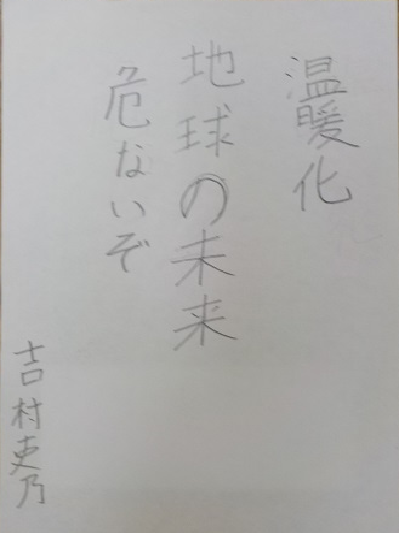 温暖化
地球の未来
危ないぞ
吉村吏乃